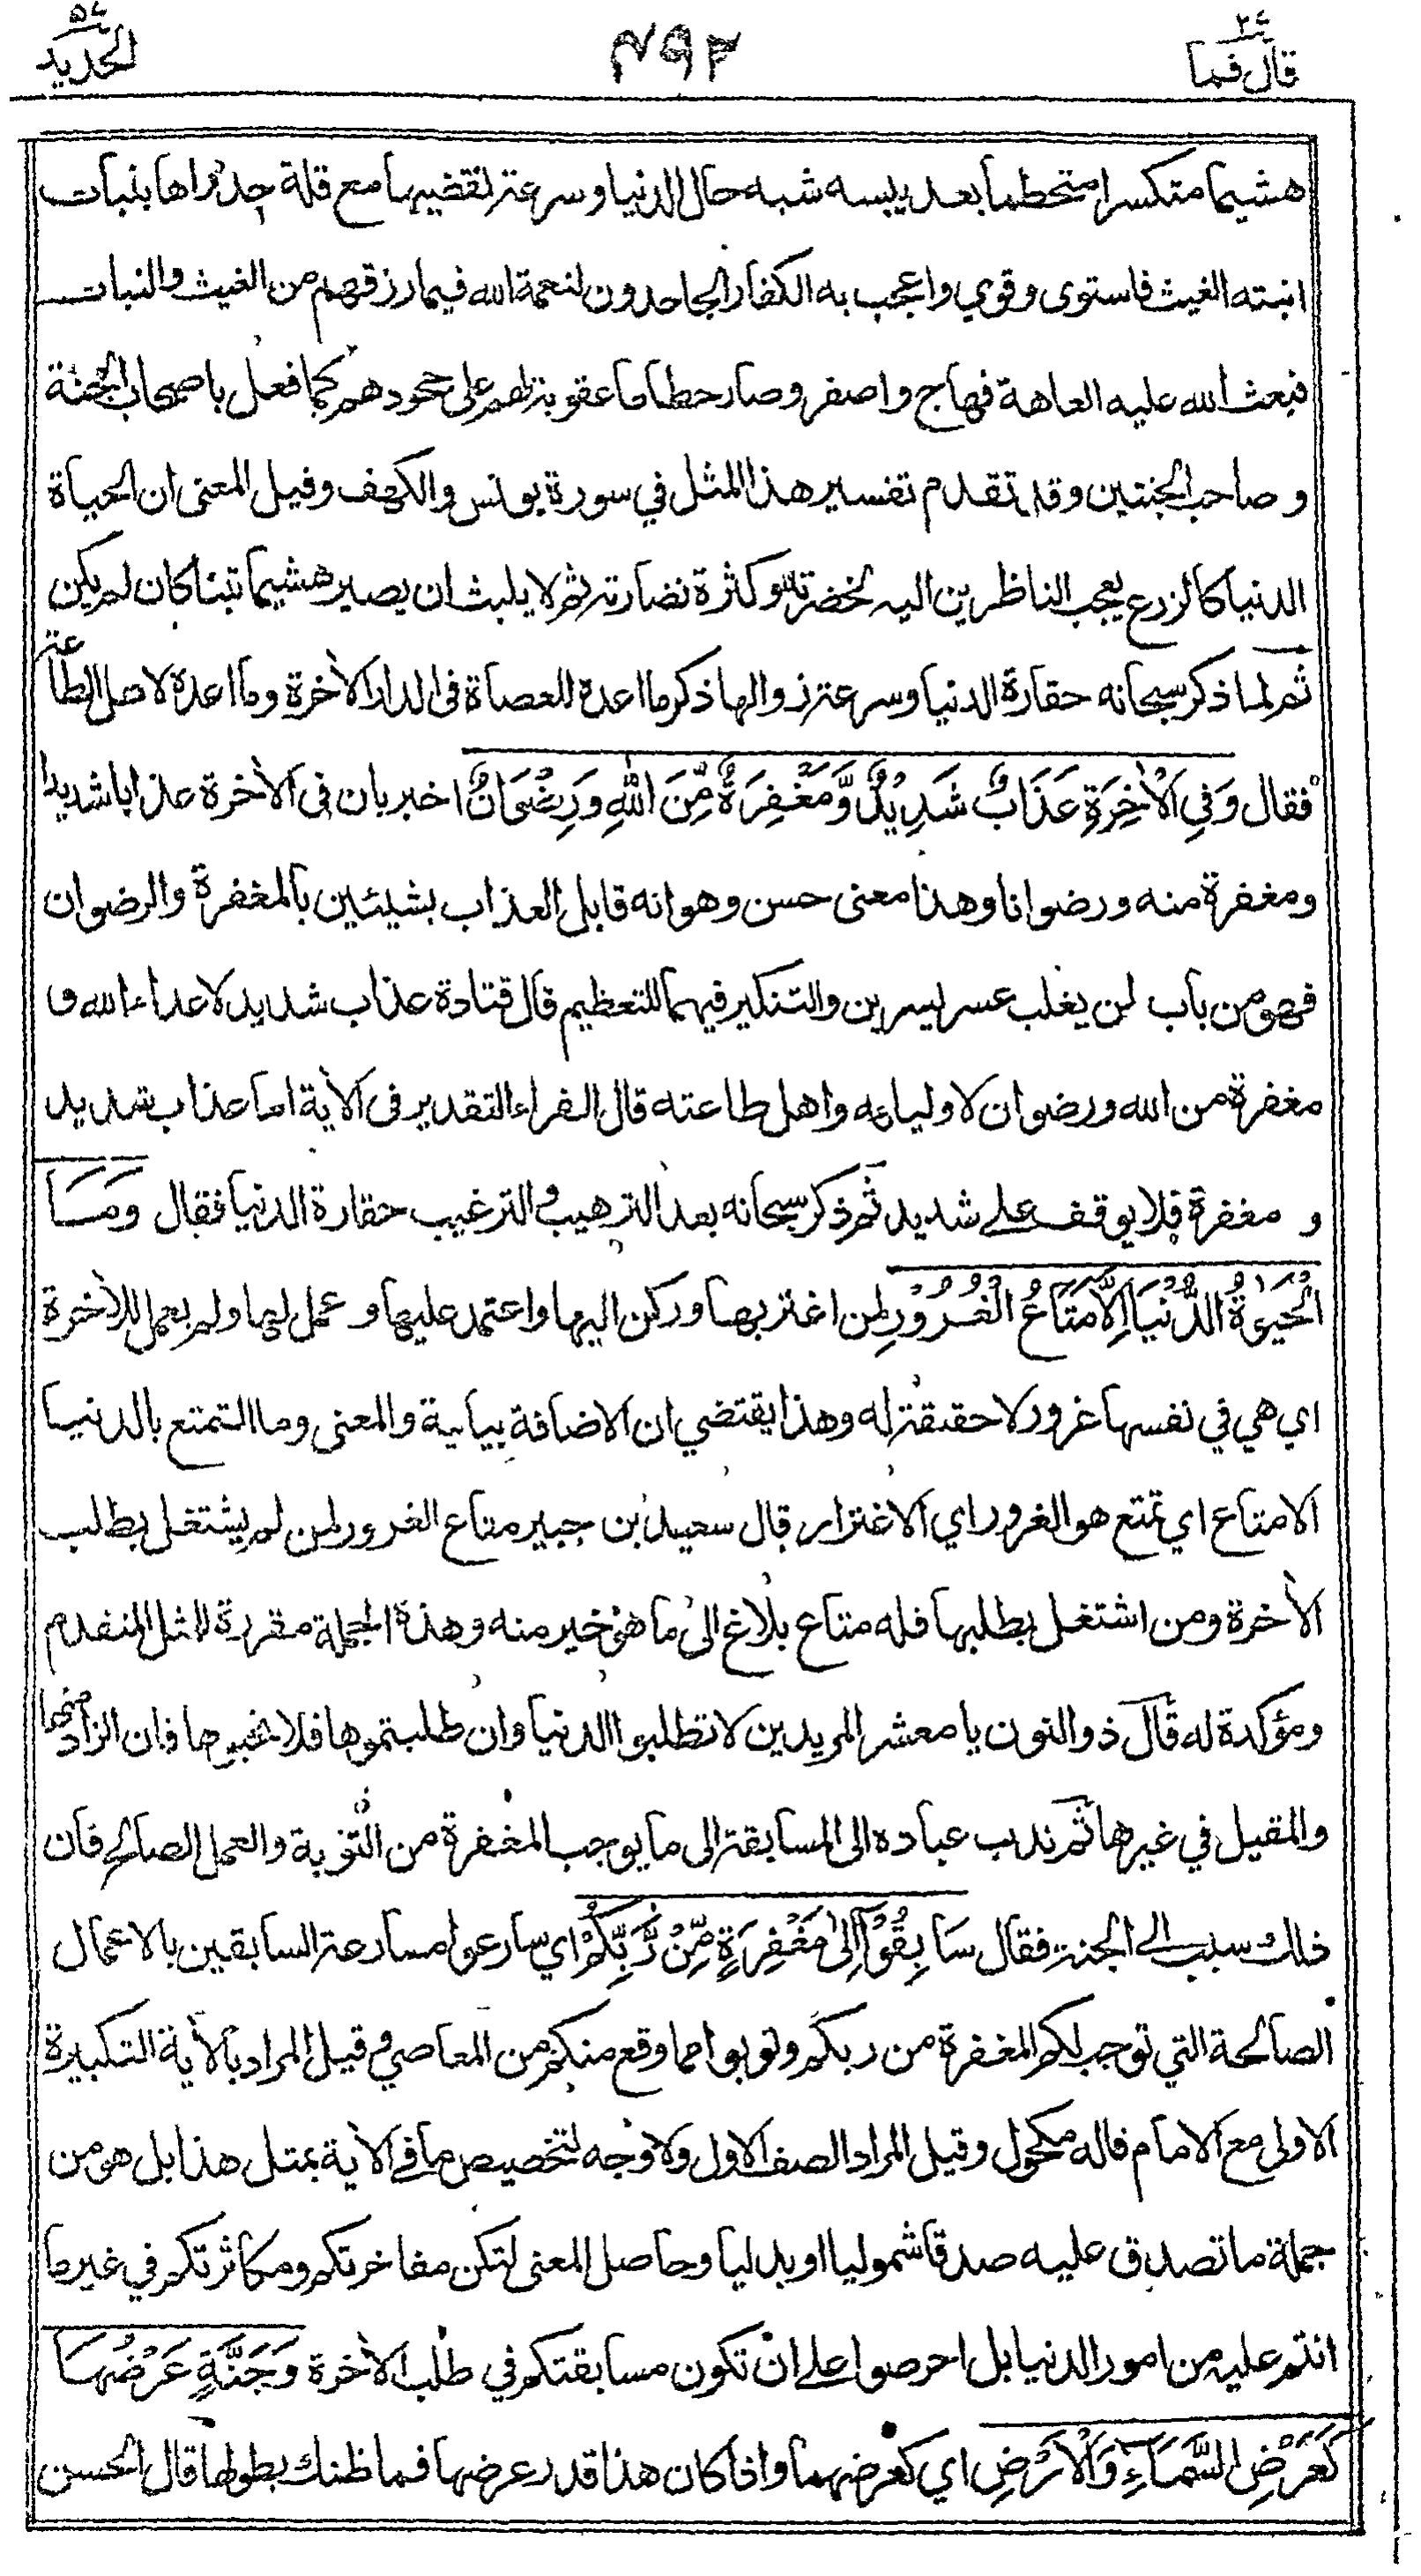 قال فما ٢٧
٤٩٢
الحديد ٥٧
هشيما متكسرا متحطما بعد يبسه شبه حال الدنيا وسرعة تقضيها مع قلة جدواها بنبات
انبته الغيث فاستوى وقوي واعجب به الكفار الجاحدون لنعمة الله فيما رزقهم من الغيث والنبات
فبعث الله عليه العاهة فهاج واصفر وصار حطاما عقوبة لهم على جحودهم كما فعل باصحاب الجنة
وصاحب الجنتين وقد تقدم تفسير هذا المثل في سورة يونس والكهف وقيل المعنى ان الحياة
الدنيا كالزرع يعجب الناظرين اليه لخضرته وكثرة نضارته ثم لا يلبث ان يصير هشيما تبنا كان لم يكن
ثم لما ذكر سبحانه حقارة الدنيا وسرعة زوالها ذكر ما اعده للعصاة في الدار الأخرة وما اعده لاهل الطاعة
فقال وَفِي الْأٰخِرَةِ عَذَابٌ شَدِيْدٌ وَّمَغْفِرَةٌ مِّنَ اللّٰهِ وَرِضْوَانٌ اخبر بان في الأخرة عذابا شديدا
ومغفرة منه ورضوانا وهذا معنى حسن وهو انه قابل العذاب بشيئين بالمغفرة والرضوان
فهو من باب لن يغلب عسر يسرين والتنكير فيهما للتعظيم قال قتادة عذاب شديد لاعداء الله و
مغفرة من الله ورضوان لاوليائه واهل طاعته قال الفراء التقدير في الأية اما عذاب شديد
و مغفرة فلا يوقف على شديد ثم ذكر سبحانه بعد الترهيب والترغيب حقارة الدنيا فقال وَمَا
الْحَيٰوةُ الدُّنْيَا اِلَّا مَتَاعُ الْغُرُوْرِ لمن اغتر بها وركن اليها واعتمد عليها وعمل لها ولم يعمل للأخرة
اي هي في نفسها غرور لا حقيقة له وهذا يقتضي ان الاضافة بيانية والمعنى وما التمتع بالدنيا
الا متاع اي تمتع هو الغرور اي الاغترار قال سعيد بن جبير متاع الغرور لمن لم يشتغل بطلب
الأخرة ومن اشتغل بطلبها فله متاع بلاغ الى ما هو خير منه وهذه الجملة مقررة للمثل المتقدم
ومؤكدة له قال ذو النون يا معشر المريدين لا تطلبوا الدنيا وان طلبتموها فلا تحبوها فان الزاد منها
والمقيل في غيرها ثم ندب عباده الى المسابقة الى ما يوجب المغفرة من التوبة والعمل الصالح فان
ذلك سبب الى الجنة فقال سَابِقُوْا اِلٰى مَغْفِرَةٍ مِّنْ رَّبِّكُمْ اي سارعوا مسارعة السابقين بالاعمال
الصالحة التي توجب لكم المغفرة من ربكم وتوبوا مما وقع منكم من المعاصي وقيل المراد بالأية التكبيرة
الاولى مع الامام قاله مكحول وقيل المراد الصف الاول ولا وجه لتخصيص ما في الأية بمثل هذا بل هو من
جملة ما تصدق عليه صدقا شموليا او بدليا وحاصل المعنى لتكن مفاخرتكم ومكاثرتكم في غير ما
انتم عليه من امور الدنيا بل احرصوا على ان تكون مسابقتكم في طلب الأخرة وَجَنَّةٍ عَرْضُهَا
كَعَرْضِ السَّمَاءِ وَالْاَرْضِ اي كعرضهما واذا كان هذا قدر عرضها فما ظنك بطولها قال الحسن